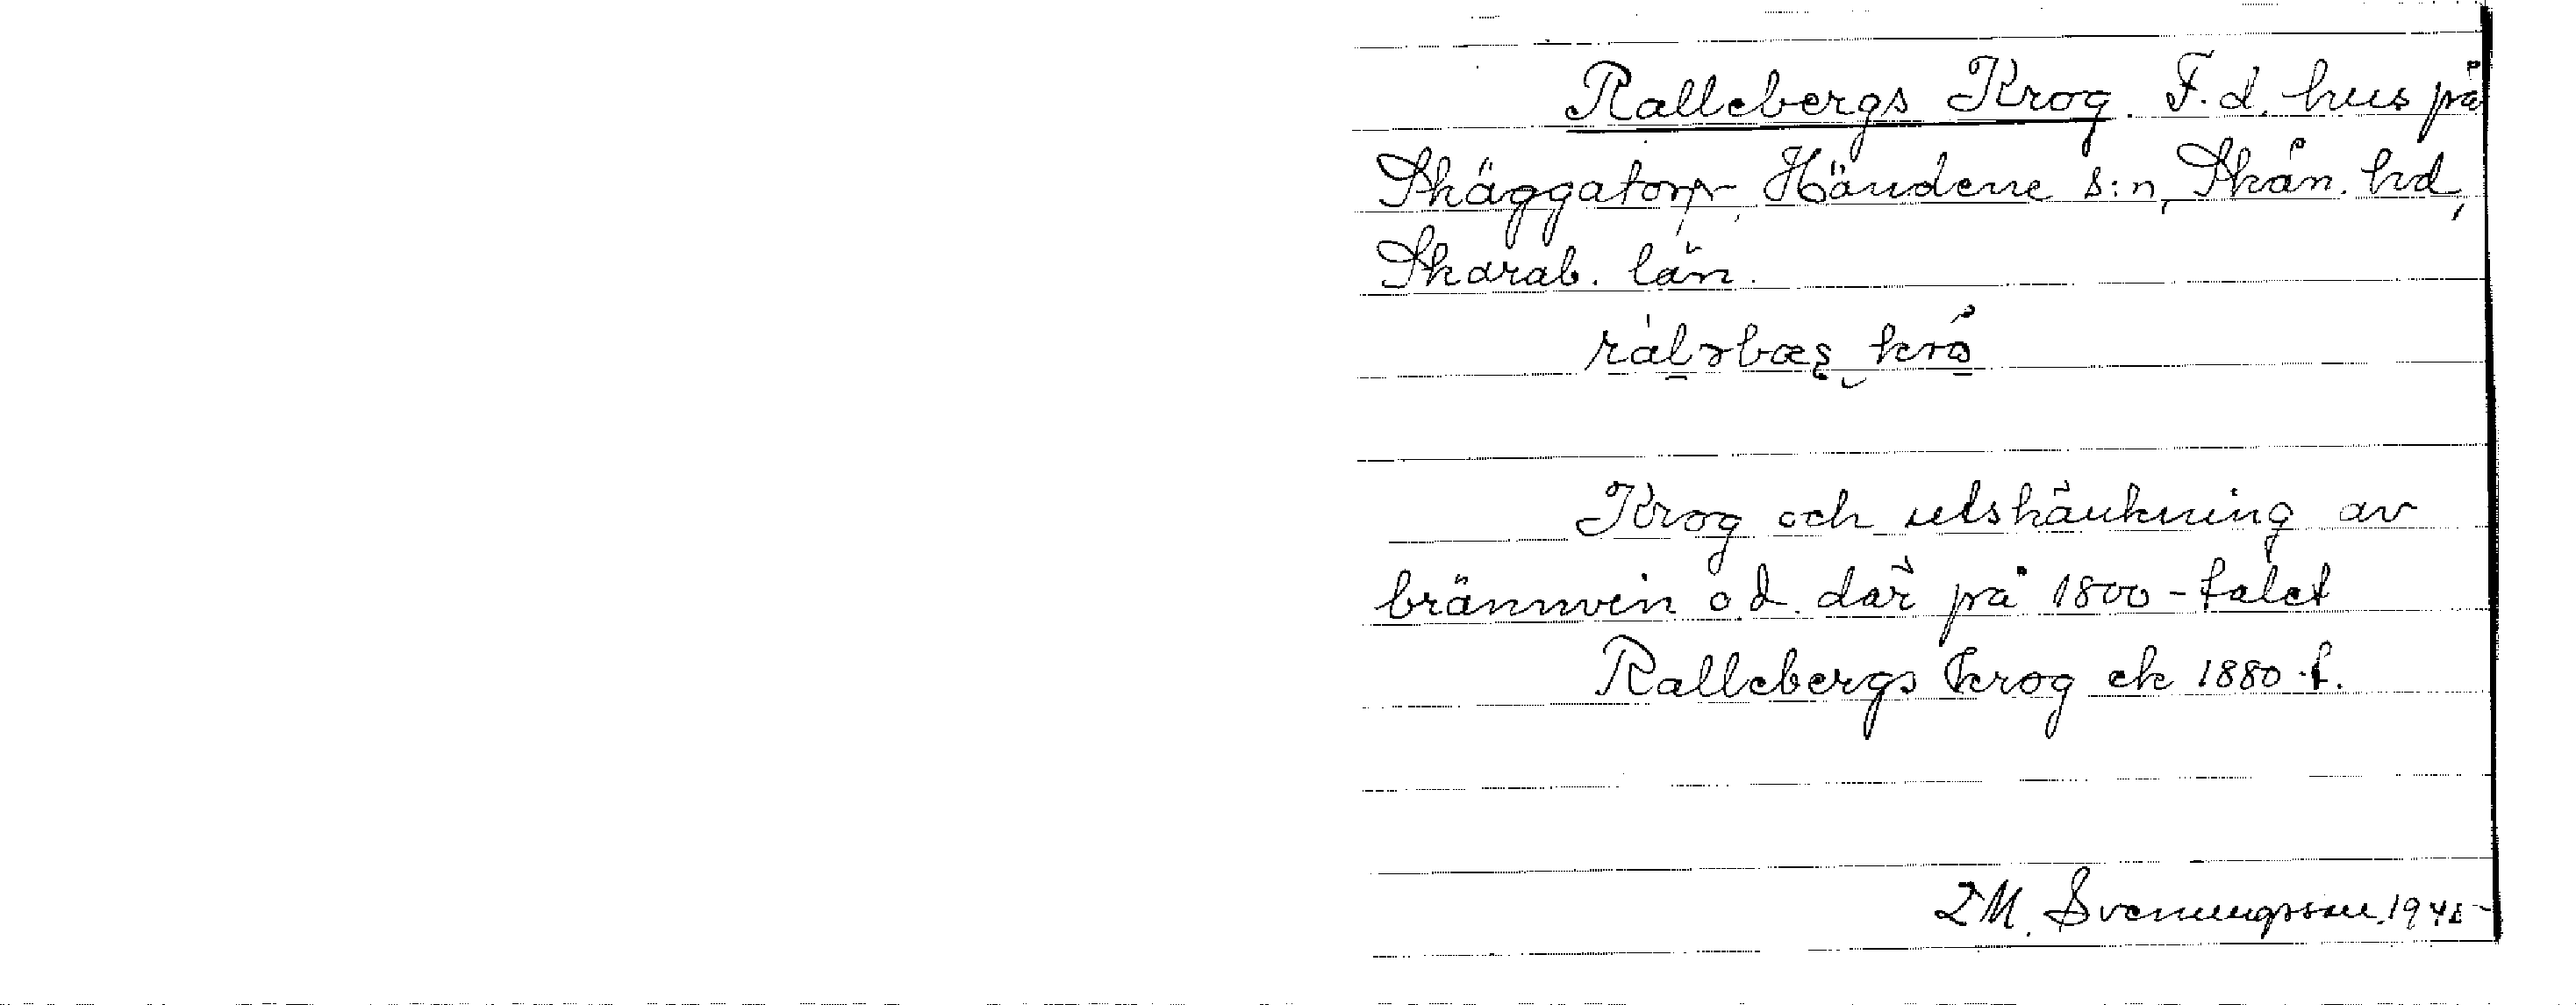 Rallebergs Krog. F.d. hus på
Skäggatorp, Händene s:n, Skån. hd,
Skarab. län.
krå
Krog och utskänkning av
brännvin o.d. där på 1800-talet
Rallebergs Krog ek 1880 f.
M. Svenungsson 194